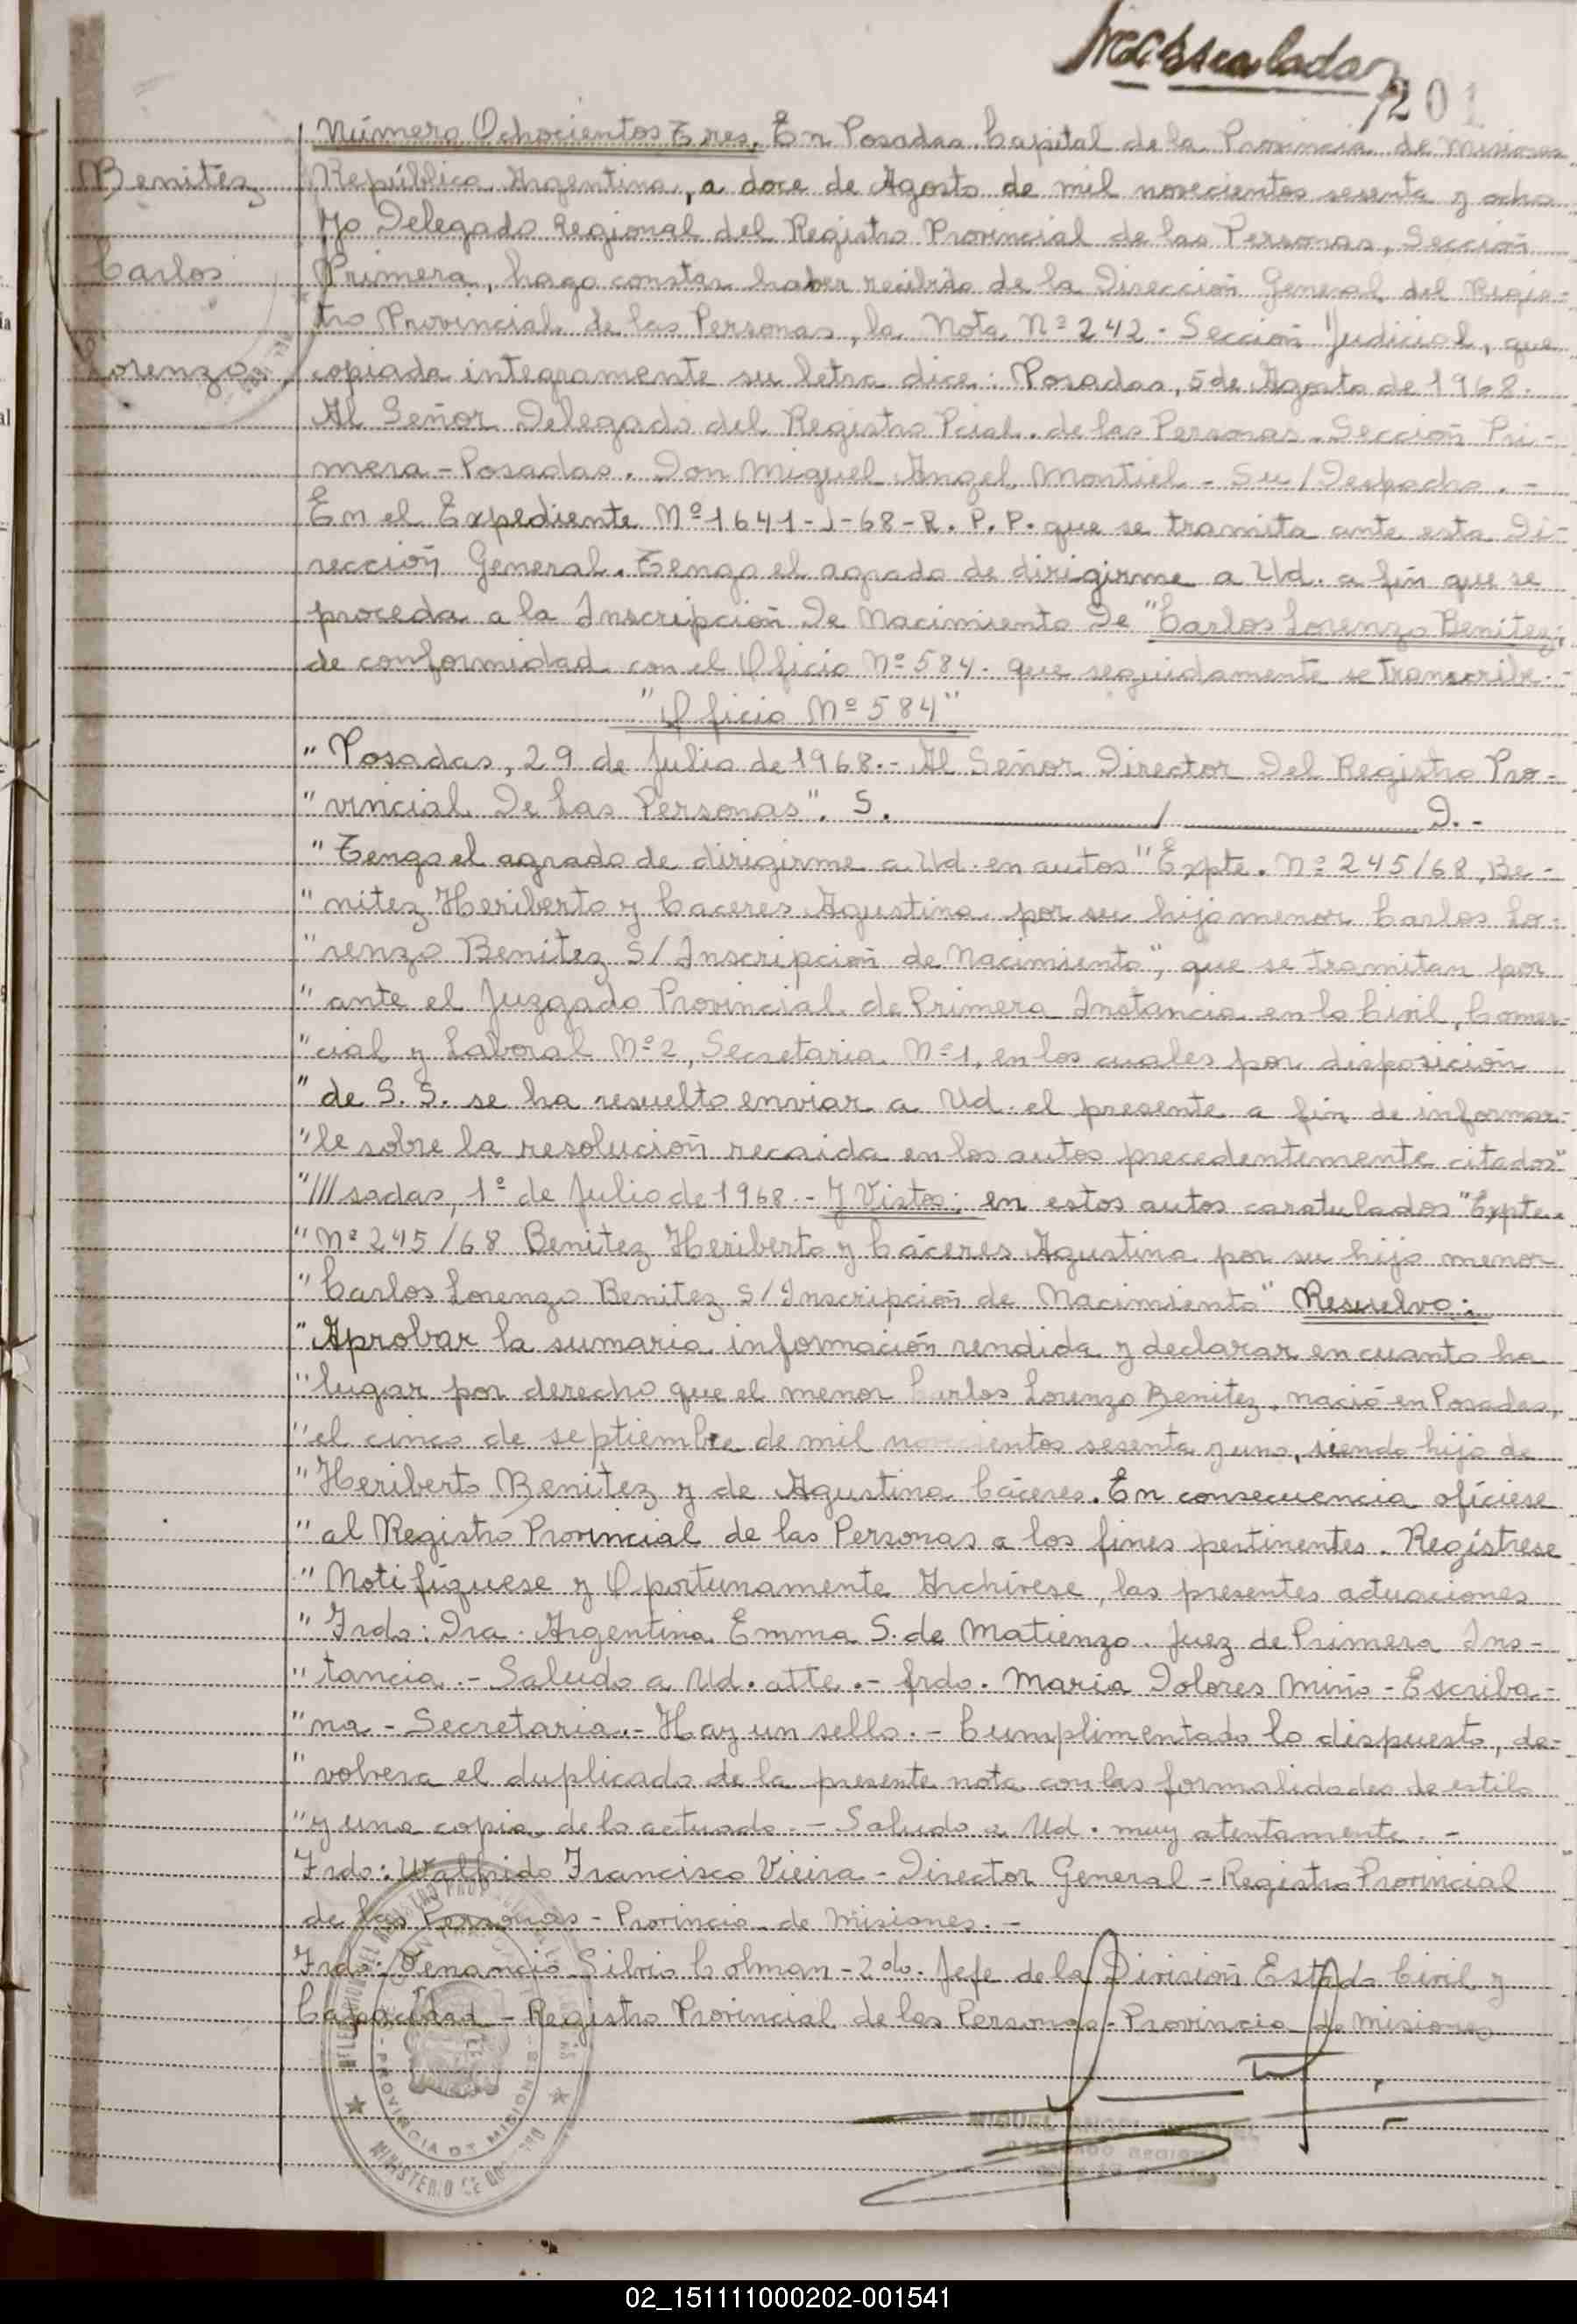 201
Número Ochocientos Tres. En Posadas Capital de la Provincia de Misiones
Benitez República Argentina, a doce de Agosto de mil novecientos sesenta y ocho
Yo Delegado Regional del Registro Provincial de las Personas, Sección
Carlos Primera, hago constar haber recibido de la Dirección General del Regis-
tro Provincial de las Personas, la Nota Nº 242 - Sección Judicial, que
Lorenzo copiada integramente su letra dice: Posadas, 5 de Agosto de 1968.
Al Señor Delegado del Registro Pcial. de las Personas. Sección Pri-
mera - Posadas. Don Miguel Angel Montiel - Su / Despacho. -
En el Expediente Nº 1641-J-68-R. P. P. que se tramita ante esta Di-
rección General. Tengo el agrado de dirigirme a Ud. a fin que se
proceda a la Inscripción De Nacimiento De "Carlos Lorenzo Benitez,
de conformidad con el Oficio Nº 584. que seguidamente se transcribe.-
"Oficio Nº 584"
" Posadas, 29 de Julio de 1968.- Al Señor Director Del Registro Pro-
" vincial De Las Personas". S. / D. -
" Tengo el agrado de dirigirme a Ud. en autos "Expte. Nº 245/68, Be-
" nitez Heriberto y Caceres Agustina por su hijo menor Carlos Lo-
" renzo Benitez S/ Inscripción de Nacimiento", que se tramitan por
" ante el Juzgado Provincial de Primera Instancia en lo Civil, Comer-
" cial y Laboral Nº 2, Secretaria Nº 1, en los cuales por disposición
" de S. S. se ha resuelto enviar a Ud. el presente a fin de informar-
" le sobre la resolución recaida en los autos precedentemente citados"
" ///sadas, 1º de Julio de 1968.- Y Vistos: en estos autos caratulados "Expte.
" Nº 245/68 Benitez Heriberto y Cáceres Agustina por su hijo menor
" Carlos Lorenzo Benitez S/ Inscripción de Nacimiento" Resuelvo:
" Aprobar la sumaria información rendida y declarar en cuanto ha
" lugar por derecho que el menor Carlos Lorenzo Benitez, nació en Posadas,
" el cinco de septiembre de mil novecientos sesenta y uno, siendo hijo de
" Heriberto Benitez y de Agustina Cáceres. En consecuencia ofíciese
" al Registro Provincial de las Personas a los fines pertinentes. Regístrese
" Notifíquese y Oportunamente Archívese, las presentes actuaciones
" Frdo: Dra. Argentina Emma S. de Matienzo. Juez de Primera Ins-
" tancia.- Saludo a Ud. atte.- frdo. Maria Dolores Miño - Escriba-
" na - Secretaria.- Hay un sello.- Cumplimentado lo dispuesto, de-
" volvera el duplicado de la presente nota con las formalidades de estilo
" y una copia de lo actuado.- Saludo a Ud. muy atentamente. -
Frdo: Walfrido Francisco Vieira - Director General - Registro Provincial
de las Personas - Provincia de Misiones. -
Frdo: Venancio Silvio Colman - 2do. Jefe de la División Estado Civil y
Capacidad - Registro Provincial de las Personas - Provincia de Misiones
PROVINCIA DE MISIONES
MINISTERIO DE GOBIERNO
MIGUEL ANGEL
02_151111000202-001541